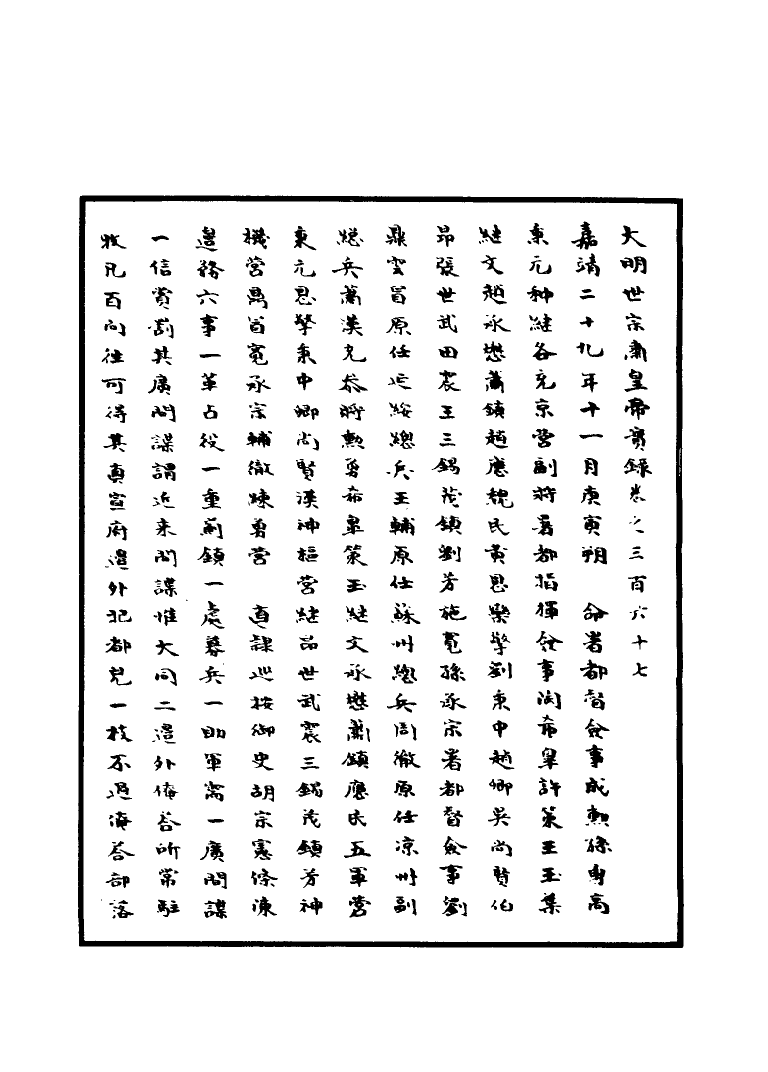 大明世宗肅皇帝實錄卷之三百六十七
嘉靖二十九年十一月庚寅朔　命署都督僉事成勲孫勇高
秉元种繼各充京營副將署都指揮僉事閔希皐許策王玉葉
繼文趙承懋蕭鎮趙應魏民黃恩樂擎劉秉中趙卿吳尚賢伯
昂張世武田震王三錫茂鎮劉芳施寬孫承宗署都督僉事劉
鼎雲冒原任延綏總兵王輔原任蘇州總兵周徹原任凉州副
總兵蕭漢充叅將勲勇希皐策玉繼文承懋蕭鎮應民五軍營
秉元恩擎秉中卿尚賢漢神樞營繼昂世武震三錫茂鎮芳神
機營鼎冒寬承宗輔徹煉勇營　直隸巡按御史胡宗憲條陳
邊務六事一革占役一重薊鎮一處募兵一助軍需一廣間諜
一信賞罰其廣間諜謂近來間諜惟大同二邊外俺荅所常駐
牧凡百向往可得其真宣府邊外把都兒一枝不過俺荅部落